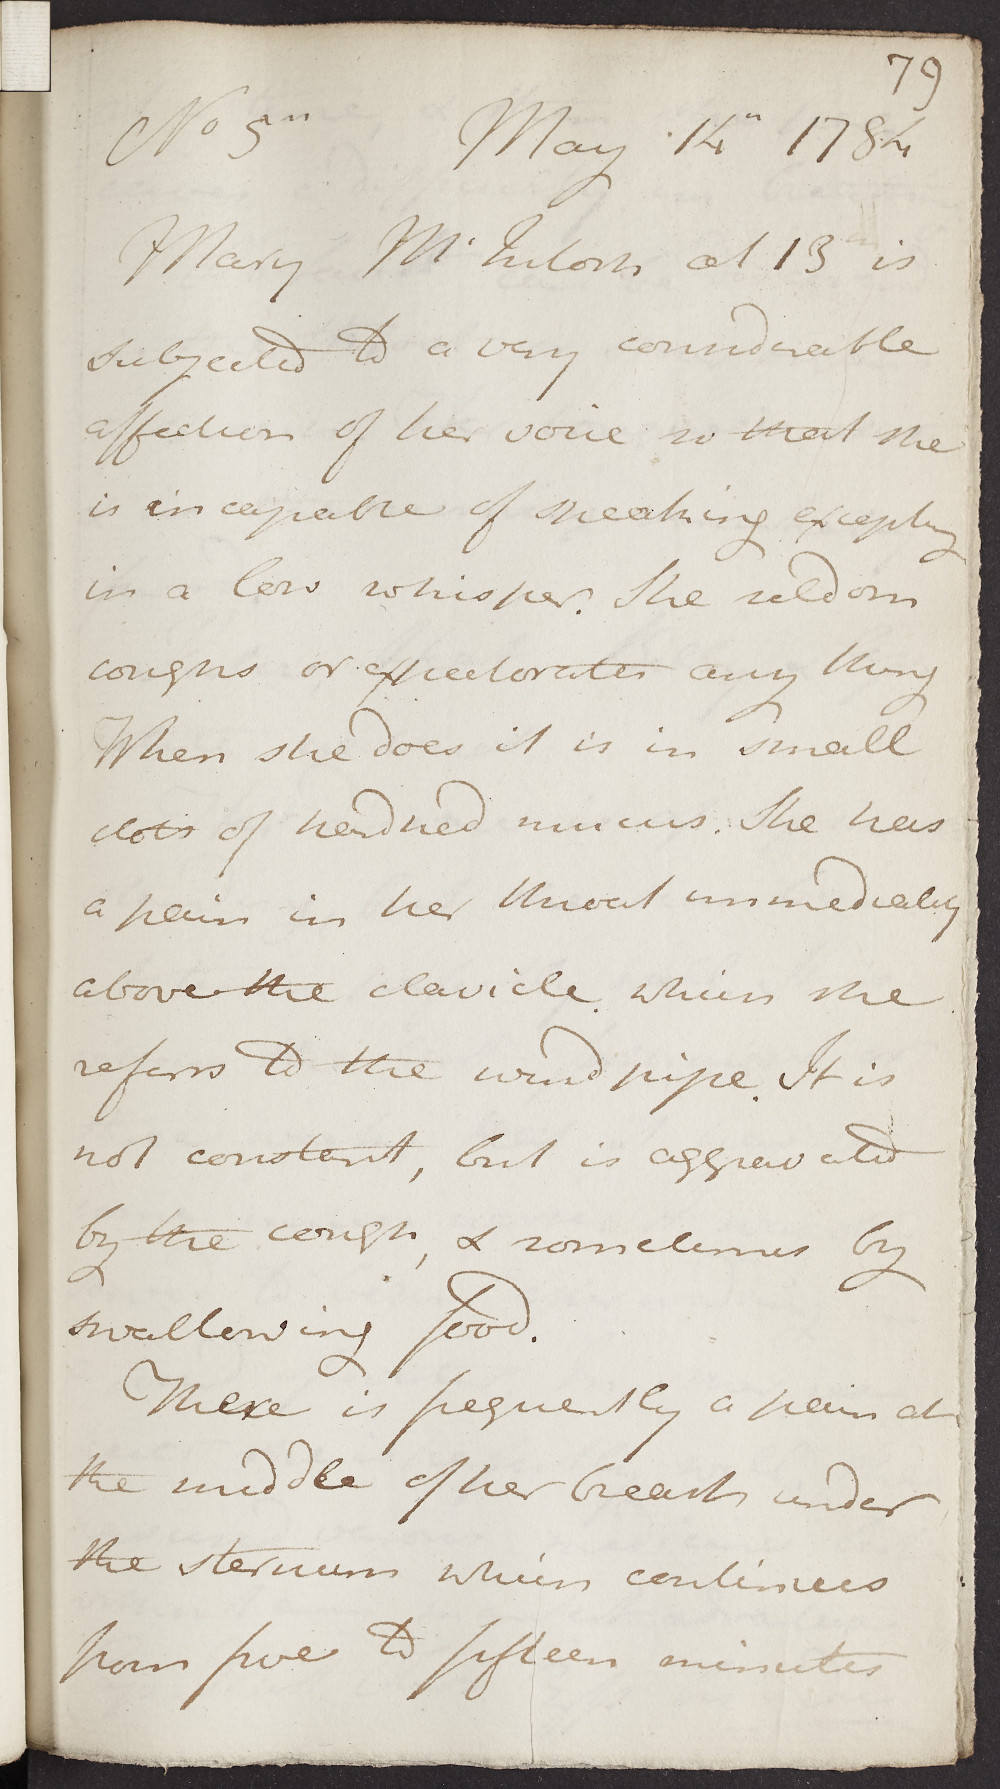 79
No 5" May 14" 1784
Mary Mc Intosh at 13 is
subjected to a very considerable
affection of her voice so that she
is incapable of speaking excepting
in a low whisper. She seldom
coughs or expectorates any thing
When she does it is in small
clots of hardned mucus. She has
a pain in her throat immediately
above the clavicle which she
referrs to the wind pipe. It is
not constant, but is aggravated
by the cough, & sometimes by
swallowing food.
There is frequently a pain at
the middle of her breast under
the sternum which continues
from five to fifteen minutes